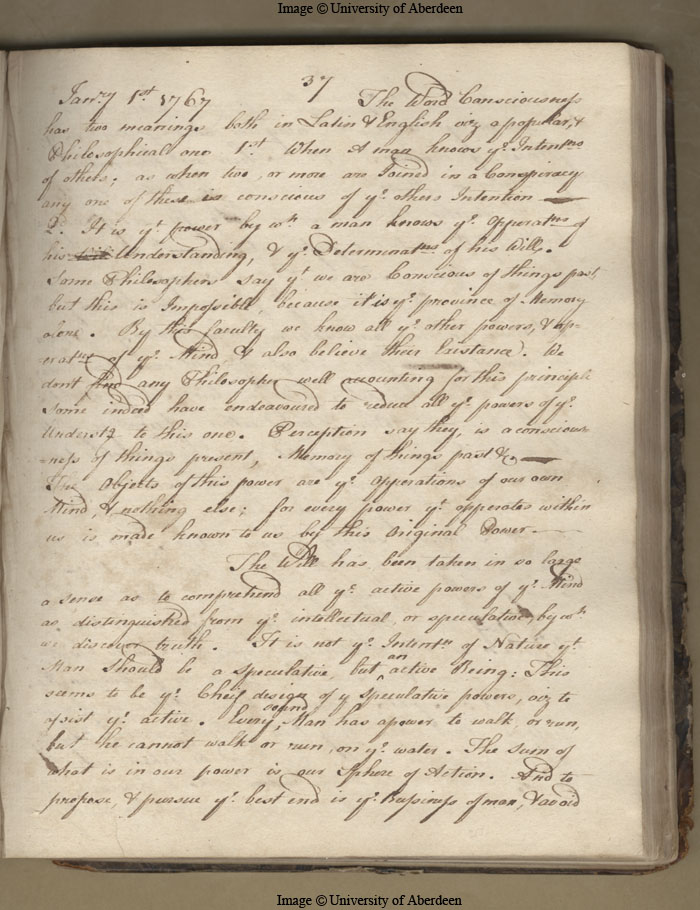 Image © University of Aberdeen
37
Janry 1st 1767 The Word Consciousness
has two meanings both in Latin & English viz a popular, &
Philosophical one 1st When A man knows ye Intentns
of others; as when two, or more are Joined in a Conspiracy
any one of these is conscious of ye others Intention —
2d. It is yt power by wh a man knows ye opperatns of
his Understanding, & ye Determinatns of his Will.
Some Philosophers say yt we are Conscious of things past,
but this is Impossible, because it is ye province of Memory
alone. By this faculty we know all ye other powers, & op-
eratns of ye Mind, & also believe their Existance. We
dont find any Philosopher well accounting for this principle
Some indeed have endeavoured to reduce all ye powers of ye
Understg to this one. Perception say they, is a conscious-
-ness of things present, Memory of things past &c —
The Objects of this power are ye opperations of our own
Mind, & nothing else; for every power yt opperates within
us is made known to us by this Original Power —
The Will has been taken in so large
a sense as to comprehend all ye active powers of ye Mind
as distinguished from ye intellectual, or speculative by wh
we discover truth. It is not ye Intentn of Nature yt
Man should be a speculative, but an active Being: This
seems to be ye Cheif design of y speculative powers, viz to
assist ye active. Every sound Man has a power to walk, or run,
but he cannot walk or run, on ye water. The sum of
what is in our power is our Sphere of Action. And to
propose, & pursue ye best end is ye Bussiness of man, & avoid
Image © University of Aberdeen